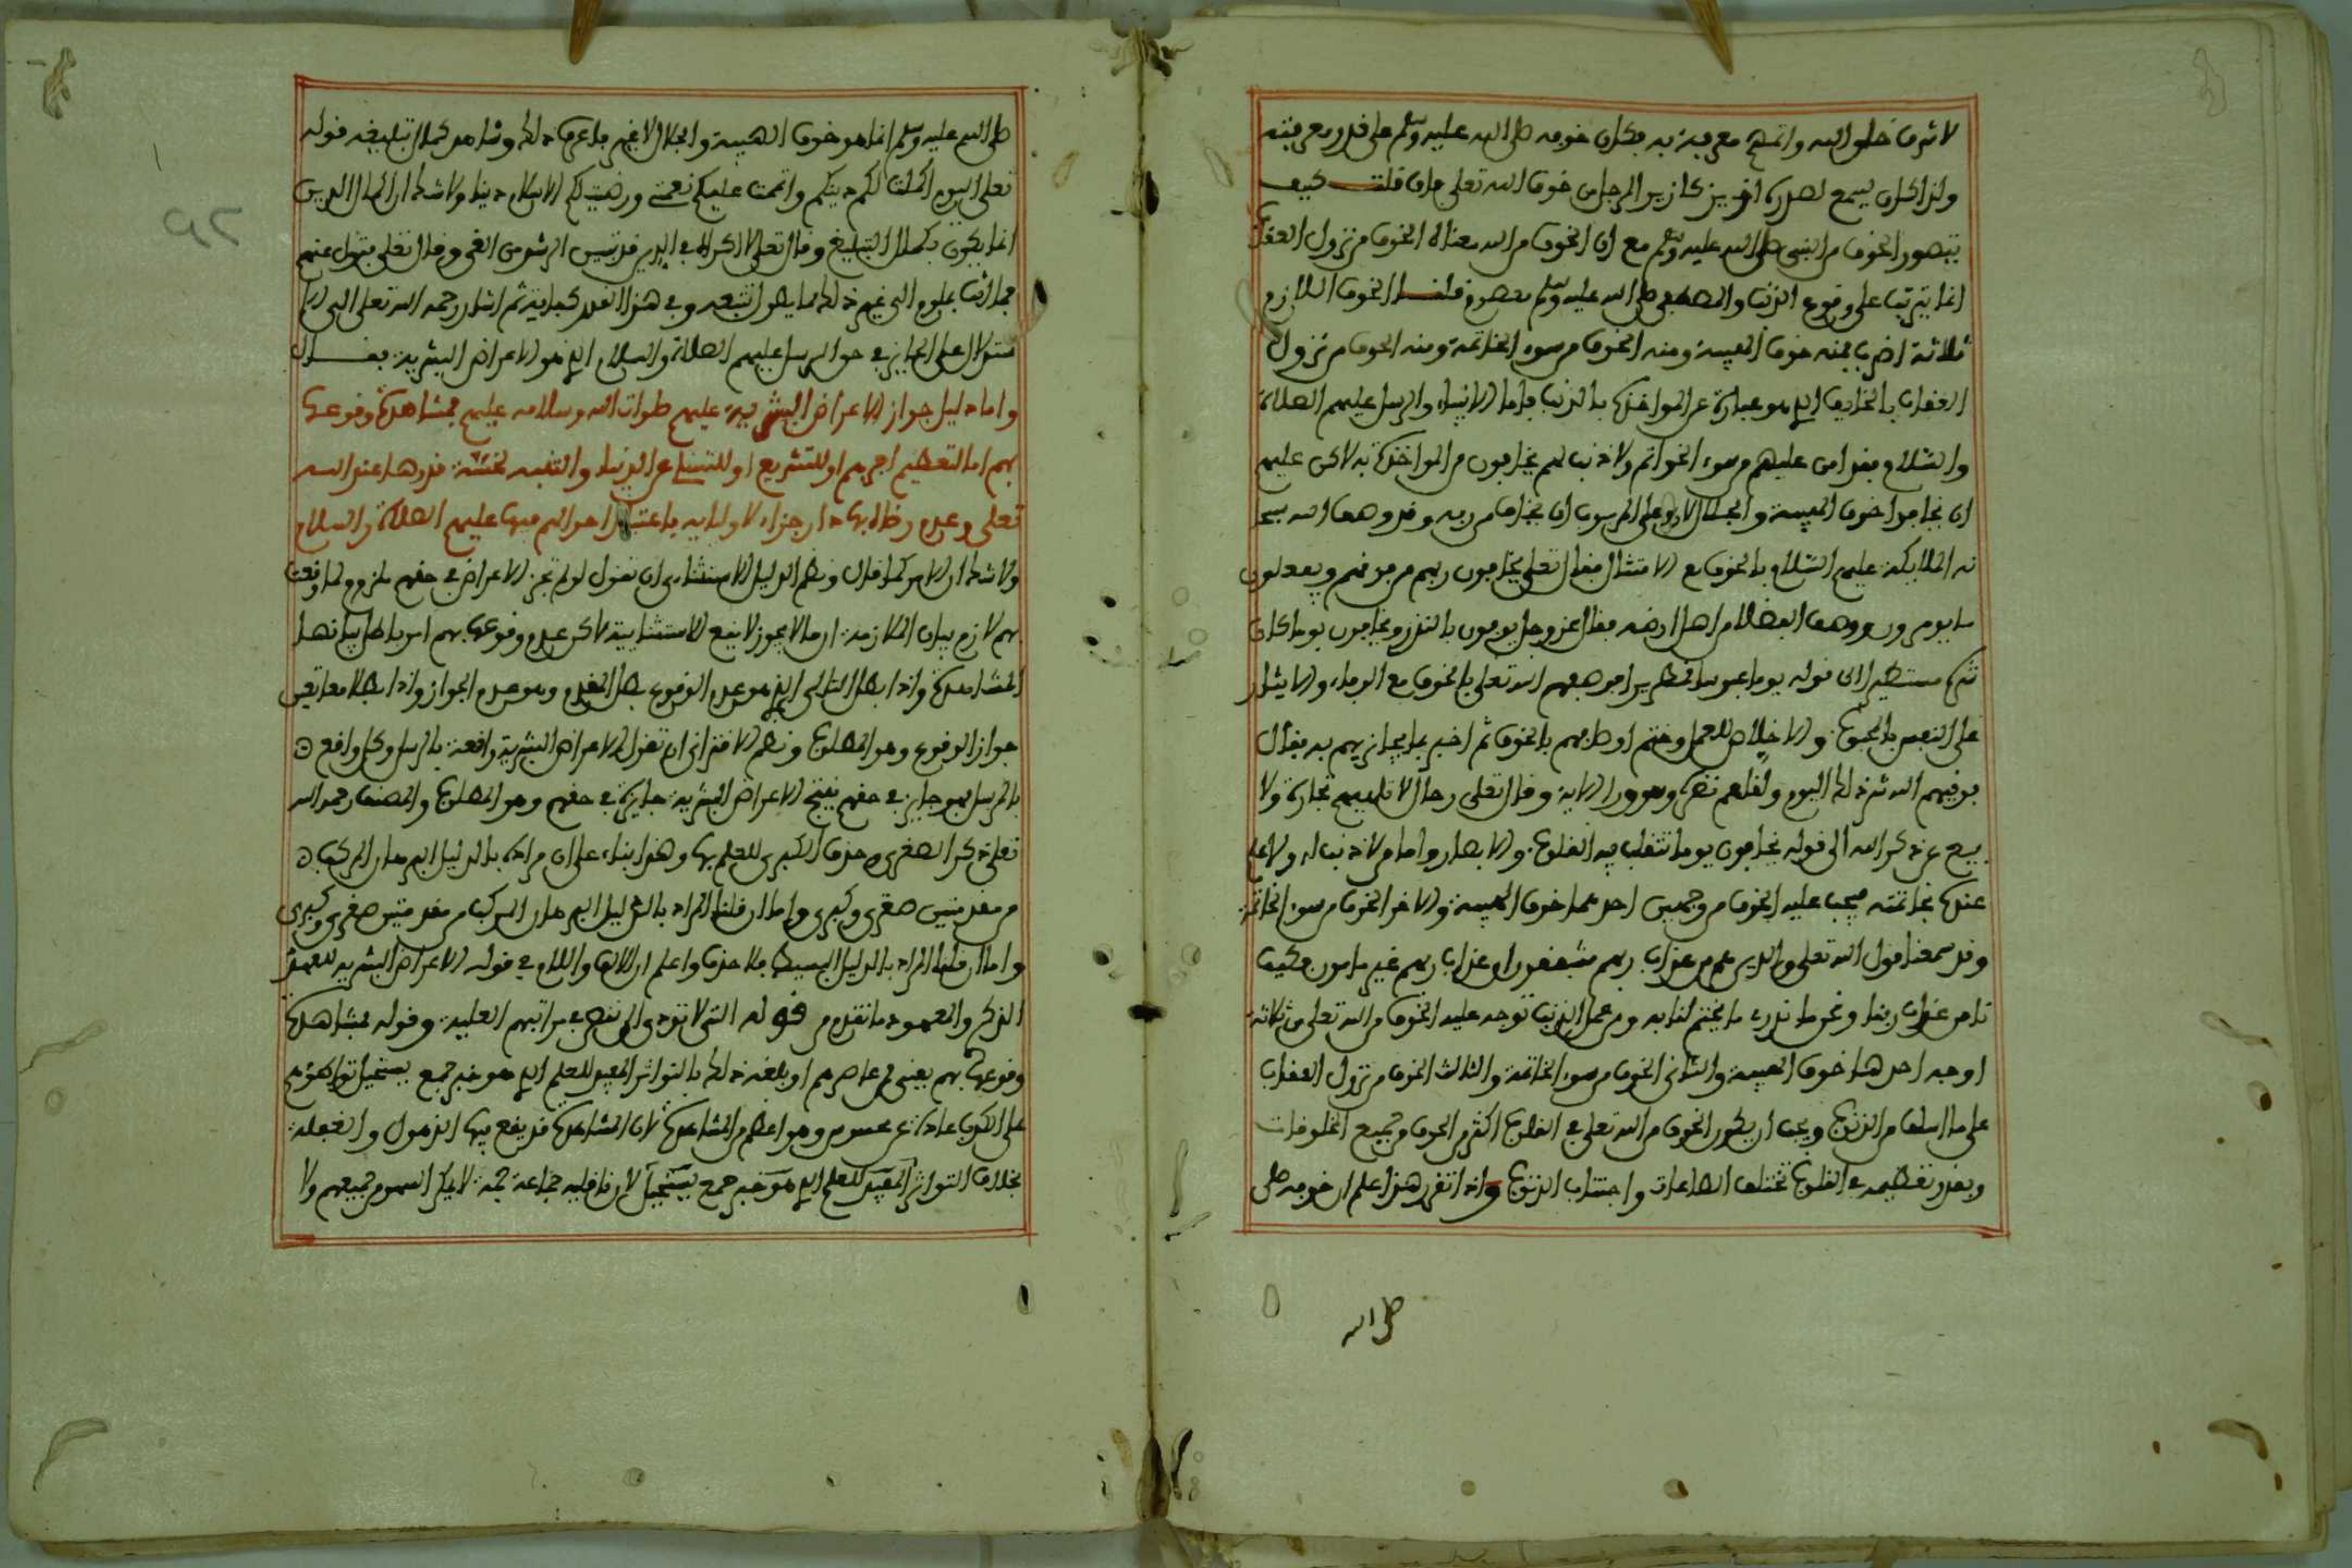 لاشرف خلق الله واتمهم معرفة به فكان خوفه صلى الله عليه وسلم على قدر معرفته
ولذا كان يسمع لصدره ازيز كازيز المرجل من خوف الله تعلى فان قلت كيف
يتصور الخوف من النبي صلى الله عليه وسلم مع ان الخوف من الله معناه الخوف من نزول العقاب
انما يترتب على وقوع الذنب والمصطفى صلى الله عليه وسلم معصوم قلنا الخوف اللازم
ثلاثة اضرب فمنه خوف الهيبة ومنه الخوف من سوء الخاتمة ومنه الخوف من نزول
العقاب بالخايف الذي هو عبارة عن المواخذة بالذنب فاما الانبياء والرسل عليهم الصلاة
والسلام فقد امن عليهم من سوء الخواتم ولا ذنب لهم يخافون من المواخذة به لاكن عليهم
ان يخافوا خوف الهيبة والجلال وعلى المربوب ان يخاف من ربه وقد وصف الله سبحا
نه الملايكة عليهم السلام بالخوف مع الامتثال فقال تعلى يخافون ربهم من فوقهم ويفعلون
ما يومرون ووصف الفضلا من اهل ارضه فقال عز وجل يوفون بالنذر ويخافون يوما كان
شره مستطيرا الى قوله يوما عبوسا قمطريرا فوصفهم الله تعلى بالخوف مع الوفاء والايثار
على النفس بالجوع والاخلاص للعمل وختم اوصافهم بالخوف ثم اخبر بما يجازيهم به فقال
فوقيهم الله شر ذلك اليوم ولقاهم نضرة وسرورا الاية وقال تعلى رجال لا تلهيهم تجارة ولا
بيع عن ذكر الله الى قوله يخافون يوما تتقلب فيه القلوب والابصار واما من لا ذنب له ولا علم
عنده بخاتمته فيجب عليه الخوف من وجهين احدهما خوف الهيبة والاخر الخوف من سوء الخاتمة
وقد سمعنا قول الله تعلى والذين هم من عذاب ربهم مشفقون ان عذاب ربهم غير مامون فكيف
نامن عذاب ربنا ونحن ما ندري ما يختم لنا به ومن عمل الذنب توجه عليه الخوف من الله تعلى من ثلاثة
اوجه احدها خوف الهيبة والثاني الخوف من سوء الخاتمة والثالث الخوف من نزول العقاب
على ما اسلف من الذنوب ويجب ان يكون الخوف من الله تعلى في القلوب اكثر من الخوف من جميع المخلوقات
وبقدر تعظيمه في القلوب تختلف الطاعات واجتناب الذنوب واذا تقرر هذا علم ان خوفه صلى
صلى الله
صلى الله عليه وسلم انما هو خوف الهيبة والجلال لا غير فاعرف ذلك وشاهد كمال تبليغه قوله
تعلى اليوم اكملت لكم دينكم واتممت عليكم نعمتي ورضيت لكم الاسلام دينا ولا شك ان اكمال الدين
انما يكون بكمال التبليغ وقال تعلى لا اكراه في الدين قد تبين الرشد من الغي وقال تعلى فتول عنهم
فما انت بملوم الى غير ذلك مما يطول تتبعه وفي هذا القدر كفاية ثم اشار رحمه الله تعلى الى
الجايز في حق الرسل عليهم الصلاة والسلام الذي هو الاعراض البشرية فقال
واما دليل جواز الاعراض البشرية عليهم صلوات الله وسلامه عليهم فمشاهدة وقوعها
بهم اما لتعظيم اجرهم او للتشريع او للتسلي عن الدنيا والتنبيه لخسة قدرها عند الله
تعلى وعدم رضاه بها دار جزاء لاوليايه باعتبار احوالهم فيها عليهم الصلاة والسلام
ولا شك ان الامر كما قال ونظم الدليل الاستثنائي ان تقول لو لم تجز الاعراض في حقهم لما وقعت
بهم لازم بيان الملازمة ان ما لا يجوز لا يقع لاكن عدم وقوعها بهم امر باطل
المشاهدة واذا بطل التالي الذي هو عدم الوقوع بطل المقدم وهو عدم الجواز واذا بطلا معا تعين
جواز الوقوع وهو المطلوب ونظم الاقتراني ان تقول الاعراض البشرية واقعة بالرسل وكل واقع
بالرسل فهو جايز في حقهم ينتج الاعراض البشرية جايزة في حقهم وهو المطلوب والمصنف رحمه الله
تعلى ذكر الصغرى وحذف الكبرى للعلم بها وهذا بناء على ان مراده بالدليل البرهان المركب
من مقدمتين صغرى وكبرى واما ان قلنا المراد بالدليل البرهان المركب من مقدمتين صغرى وكبرى
واما ان قلنا المراد بالدليل البسيط فلا حذف واعلم ان الالف واللام في قوله الاعراض البشرية للعهد
الذكري والمعهود ما تقدم من قوله التي لا تودي الى نقص في مراتبهم العلية وقوله فمشاهدة
وقوعها بهم يعني لمن عاصرهم او بلغه ذلك بالتواتر المفيد للعلم الذي هو خبر جمع يستحيل تواطؤهم
على الكذب عادة عن محسوس وهو اعظم من المشاهدة لان المشاهدة قد يقع فيها الذهول والغفلة
بخلاف التواتر المفيد للعلم الذي هو خبر جمع يستحيل لان ناقليه جماعة جمة لا يمكن السهو من جميعهم ولا